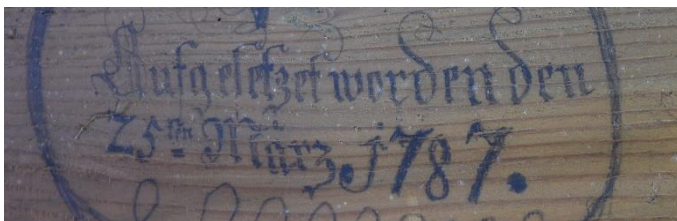 Aufgesetzet worden den
25ten März. 1787.